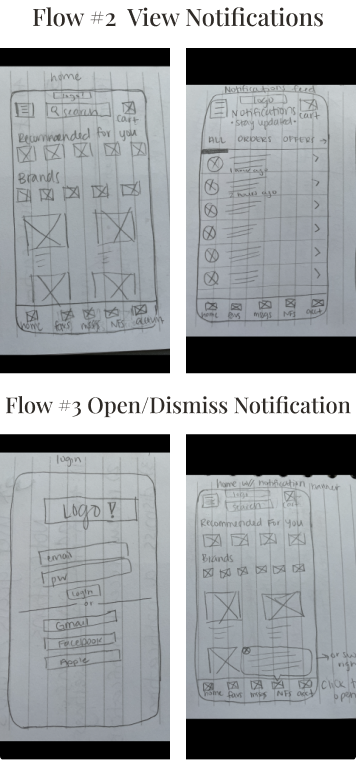 Flow #2 View Notifications
home
logo!
search
cart
Recommended for you
Brands
home favs msgs NFS account
Notifications feed
logo
cart
Notifications
-stay updated-
ALL ORDERS OFFERS →
1 hour ago
home favs msgs NFS acct
Flow #3 Open/Dismiss Notification
login
LOGO!
email
pw
login
or
Gmail
Facebook
Apple
home w/ notification banner
logo
search
cart
Recommended For You
Brands
home favs msgs NFS acct